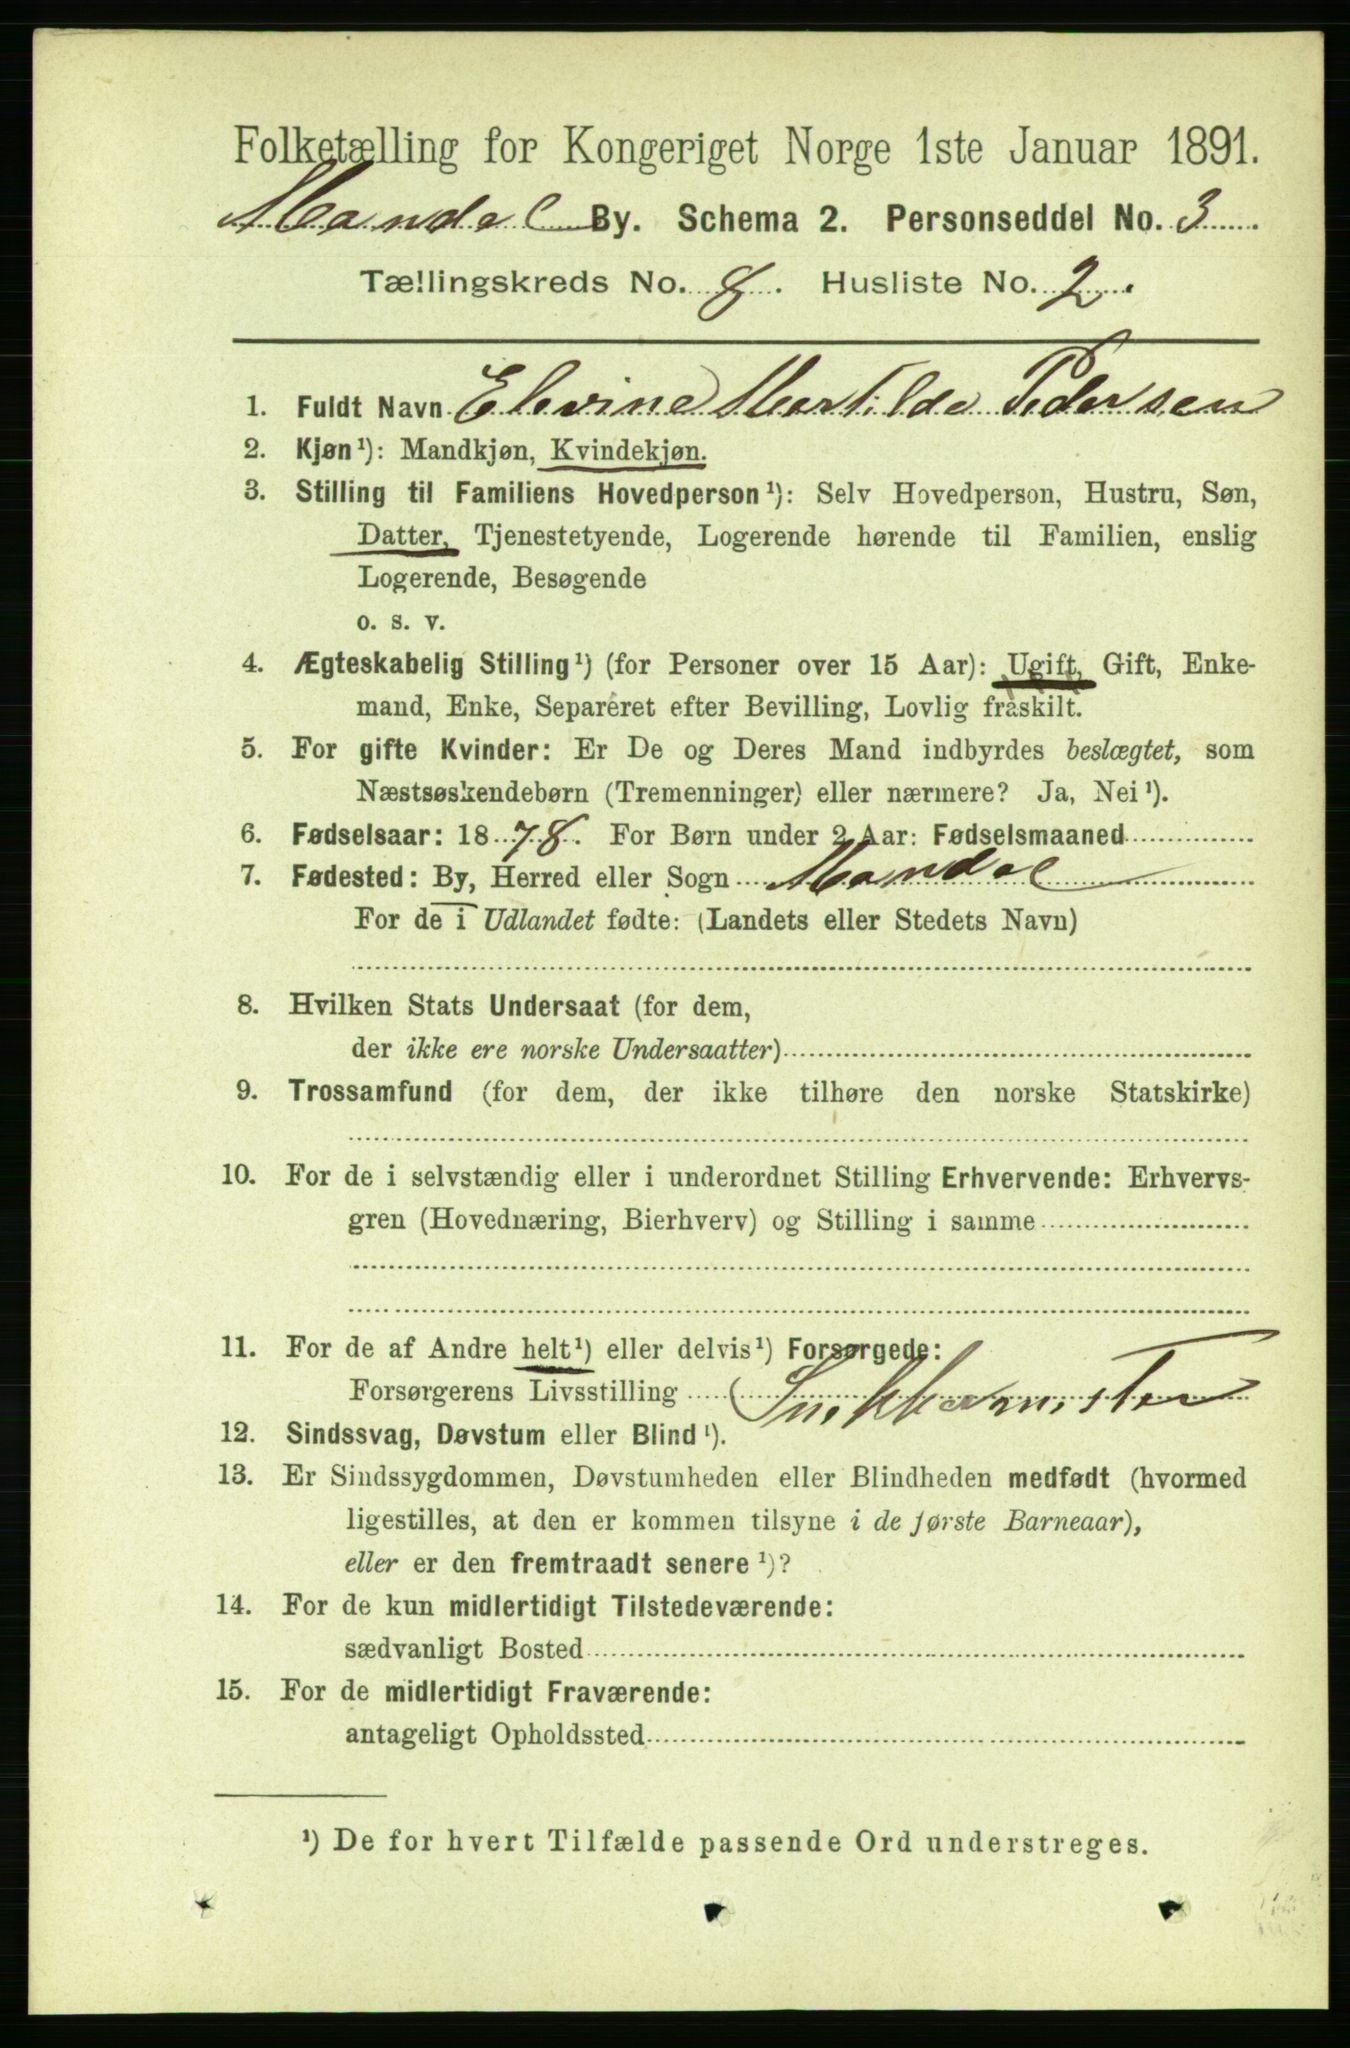 Folketælling for Kongeriget Norge 1ste Januar 1891.
Mandal By. Schema 2. Personseddel No. 3
Tællingskreds No. 8. Husliste No. 2.
1. Fuldt Navn Elevine Martilde Pedersen
2. Kjøn¹): Mandkjøn, Kvindekjøn.
3. Stilling til Familiens Hovedperson¹): Selv Hovedperson, Hustru, Søn,
Datter, Tjenestetyende, Logerende hørende til Familien, enslig
Logerende, Besøgende
o. s. v.
4. Ægteskabelig Stilling¹) (for Personer over 15 Aar): Ugift, Gift, Enke-
mand, Enke, Separeret efter Bevilling, Lovlig fraskilt.
5. For gifte Kvinder: Er De og Deres Mand indbyrdes beslægtet, som
Næstsøskendebørn (Tremenninger) eller nærmere? Ja, Nei¹).
6. Fødselsaar: 1878. For Børn under 2 Aar: Fødselsmaaned
7. Fødested: By, Herred eller Sogn Mandal
For de i Udlandet fødte: (Landets eller Stedets Navn)
8. Hvilken Stats Undersaat (for dem,
der ikke ere norske Undersaatter)
9. Trossamfund (for dem, der ikke tilhøre den norske Statskirke)
10. For de i selvstændig eller i underordnet Stilling Erhvervende: Erhvervs-
gren (Hovednæring, Bierhverv) og Stilling i samme
11. For de af Andre helt¹) eller delvis¹) Forsørgede:
Forsørgerens Livsstilling
12. Sindssvag, Døvstum eller Blind¹).
13. Er Sindssygdommen, Døvstumheden eller Blindheden medfødt (hvormed
ligestilles, at den er kommen tilsyne i de første Barneaar),
eller er den fremtraadt senere¹)?
14. For de kun midlertidigt Tilstedeværende:
sædvanligt Bosted
15. For de midlertidigt Fraværende:
antageligt Opholdssted
¹) De for hvert Tilfælde passende Ord understreges.